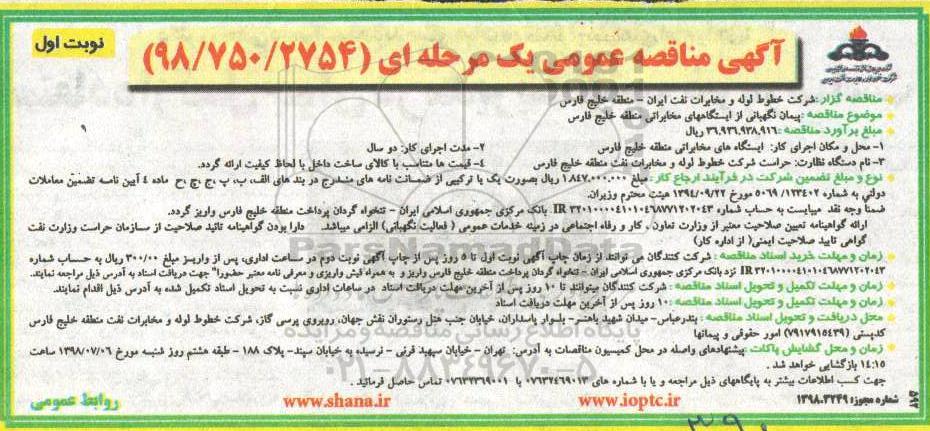 نوبت اول
آگهی مناقصه عمومی یک مرحله ای (۹۸/۷۵۰/۲۷۵۴)
مناقصه گزار :شرکت خطوط لوله و مخابرات نفت ایران - منطقه خلیج فارس
موضوع مناقصه :پیمان نگهبانی از ایستگاههای مخابراتی منطقه خلیج فارس
مبلغ برآورد مناقصه :۳۶.۹۳۶.۹۳۸.۹۱۶ ریال
۱- محل و مکان اجرای کار: ایستگاه های مخابراتی منطقه خلیج فارس ۲- مدت اجرای کار: دو سال
۳- نام دستگاه نظارت: حراست شرکت خطوط لوله و مخابرات نفت منطقه خلیج فارس ۴- قیمت ها متناسب با کالای ساخت داخل با لحاظ کیفیت ارائه گردد.
نوع و مبلغ تضمین شرکت در فرآیند ارجاع کار: مبلغ ۱.۸۴۷.۰۰۰.۰۰۰ ریال بصورت یک یا ترکیبی از ضمانت نامه های مندرج در بند های الف، ب، پ ،ج ،چ ،ح ماده ۴ آیین نامه تضمین معاملات
دولتی به شماره ۱۲۳۴۰۲/ ۵۰۶۹ مورخ ۱۳۹۴/۰۹/۲۲ هیئت محترم وزیران.
ضمناً وجه نقد میبایست به حساب شماره IR ۳۲۰۱۰۰۰۰۴۱۰۱۰۴۶۸۷۷۱۲۰۲۰۴۳ بانک مرکزی جمهوری اسلامی ایران - تنخواه گردان پرداخت منطقه خلیج فارس واریز گردد.
ارائه گواهینامه تعیین صلاحیت معتبر از وزارت تعاون ، کار و رفاه اجتماعی در زمینه خدمات عمومی ( فعالیت نگهبانی) الزامی میباشد. دارا بودن گواهینامه تائید صلاحیت از سازمان حراست وزارت نفت
گواهی تایید صلاحیت ایمنی( از اداره کار)
زمان و مهلت خرید اسناد مناقصه : شرکت کنندگان می توانند از زمان چاپ آگهی نوبت اول تا ۵ روز پس از چاپ آگهی نوبت دوم در ساعات اداری، پس از واریز مبلغ ۳۰۰/۰۰۰ ریال به حساب شماره
IR ۳۲۰۱۰۰۰۰۴۱۰۱۰۴۶۸۷۷۱۲۰۲۰۴۳ نزد بانک مرکزی جمهوری اسلامی ایران - تنخواه گردان پرداخت منطقه خلیج فارس واریز و به همراه فیش واریزی و معرفی نامه معتبر حضورا" جهت دریافت اسناد به آدرس ذیل مراجعه نمایند.
زمان و مهلت تکمیل و تحویل اسناد مناقصه : شرکت کنندگان میتوانند تا ۱۰ روز پس از آخرین مهلت دریافت اسناد در ساعات اداری نسبت به تحویل اسناد تکمیل شده به آدرس ذیل اقدام نمایند.
زمان و مهلت تکمیل و تحویل اسناد مناقصه : ۱۰ روز پس از آخرین مهلت دریافت اسناد
محل دریافت و تحویل اسناد مناقصه : بندرعباس- میدان شهید باهنر- بلوار پاسداران، خیابان جنب هتل رستوران نقش جهان، روبروی پرسی گاز، شرکت خطوط لوله و مخابرات نفت منطقه خلیج فارس
کدپستی (۷۹۱۷۹۱۵۴۳۹) امور حقوقی و پیمانها
زمان و محل گشایش پاکات :پیشنهادهای واصله در محل کمیسیون مناقصات به آدرس: تهران - خیابان سپهبد قرنی - نرسیده به خیابان سپند- پلاک ۱۸۸ - طبقه هشتم روز شنبه مورخ ۱۳۹۸/۰۷/۰۶ ساعت
۱۴:۱۵ بازگشایی خواهد شد .
جهت کسب اطلاعات بیشتر به پایگاههای ذیل مراجعه و یا با شماره های ۰۷۶۳۲۴۶۹۰۱۳ یا ۰۷۶۳۲۳۶۹۰۰۱ تماس حاصل فرمائید .
شماره مجوز: ۱۳۹۸.۳۲۴۹ www.ioptc.ir www.shana.ir روابط عمومی
ParsNamadData
پایگاه اطلاع رسانی مناقصه و مزایده
۰۲۱-۸۸۳۴۹۶۷۰-۵